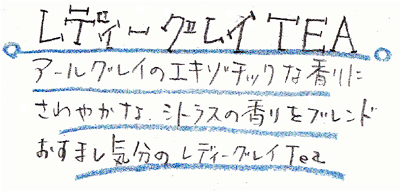 レディーグレイ TEA
アールグレイのエキゾチックな香りに
さわやかな、シトラスの香りをブレンド
おすまし気分の レディーグレイTea